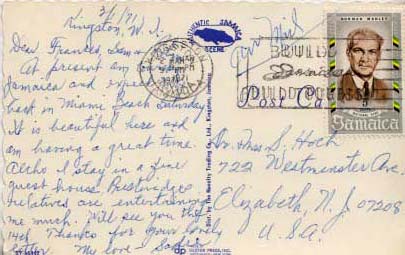 3/1/71
Kingston, W.I.
Dear Frances, Sam &
At present am
Jamaica and
back in Miami Beach Saturday
It is beautiful here and
am having a great time.
Altho I stay in a fine
guest house
relatives are entertaining
me much. Will see you the
14th. Thanks for your lovely
letter. My love - 
AUTHENTIC JAMAICA
SCENE
KINGSTON
JAMAICA
Air Mail
BUILD
Jamaica
BUILD
Post Ca
NORMAN MANLEY
5
Jamaica
Dr. Mrs. S. Hoch
722 Westminster Ave.
Elizabeth, N.J. 07208
U.S.A.
Dist. by The Novelty Trading Co. Ltd., Kingston, Jamaica
dp
DEXTER PRESS, INC.